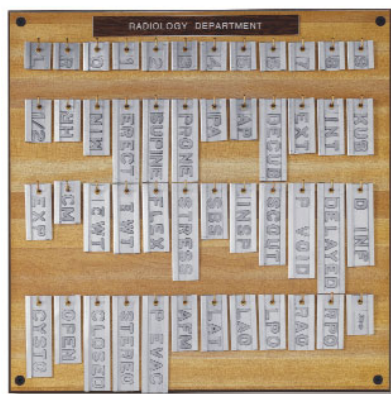 RADIOLOGY DEPARTMENT
L R 0 1 2 3 4 5 6 7 8 9
1/2 HR MIN ERECT SUPINE PRONE PA AP DECUB EXT INT XUS
EXP CM ICWT EWT FLEX STRESS SBS INSP SCOUT P VOID DELAYED D INF
CYSTO OPEN CLOSED STEREO P EVAC AFM LAT LAO LPO RAO RPO